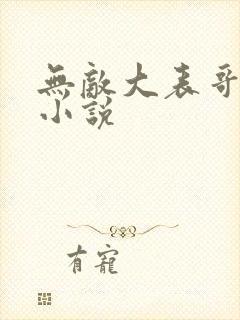 無敵大表哥
小說
有寵